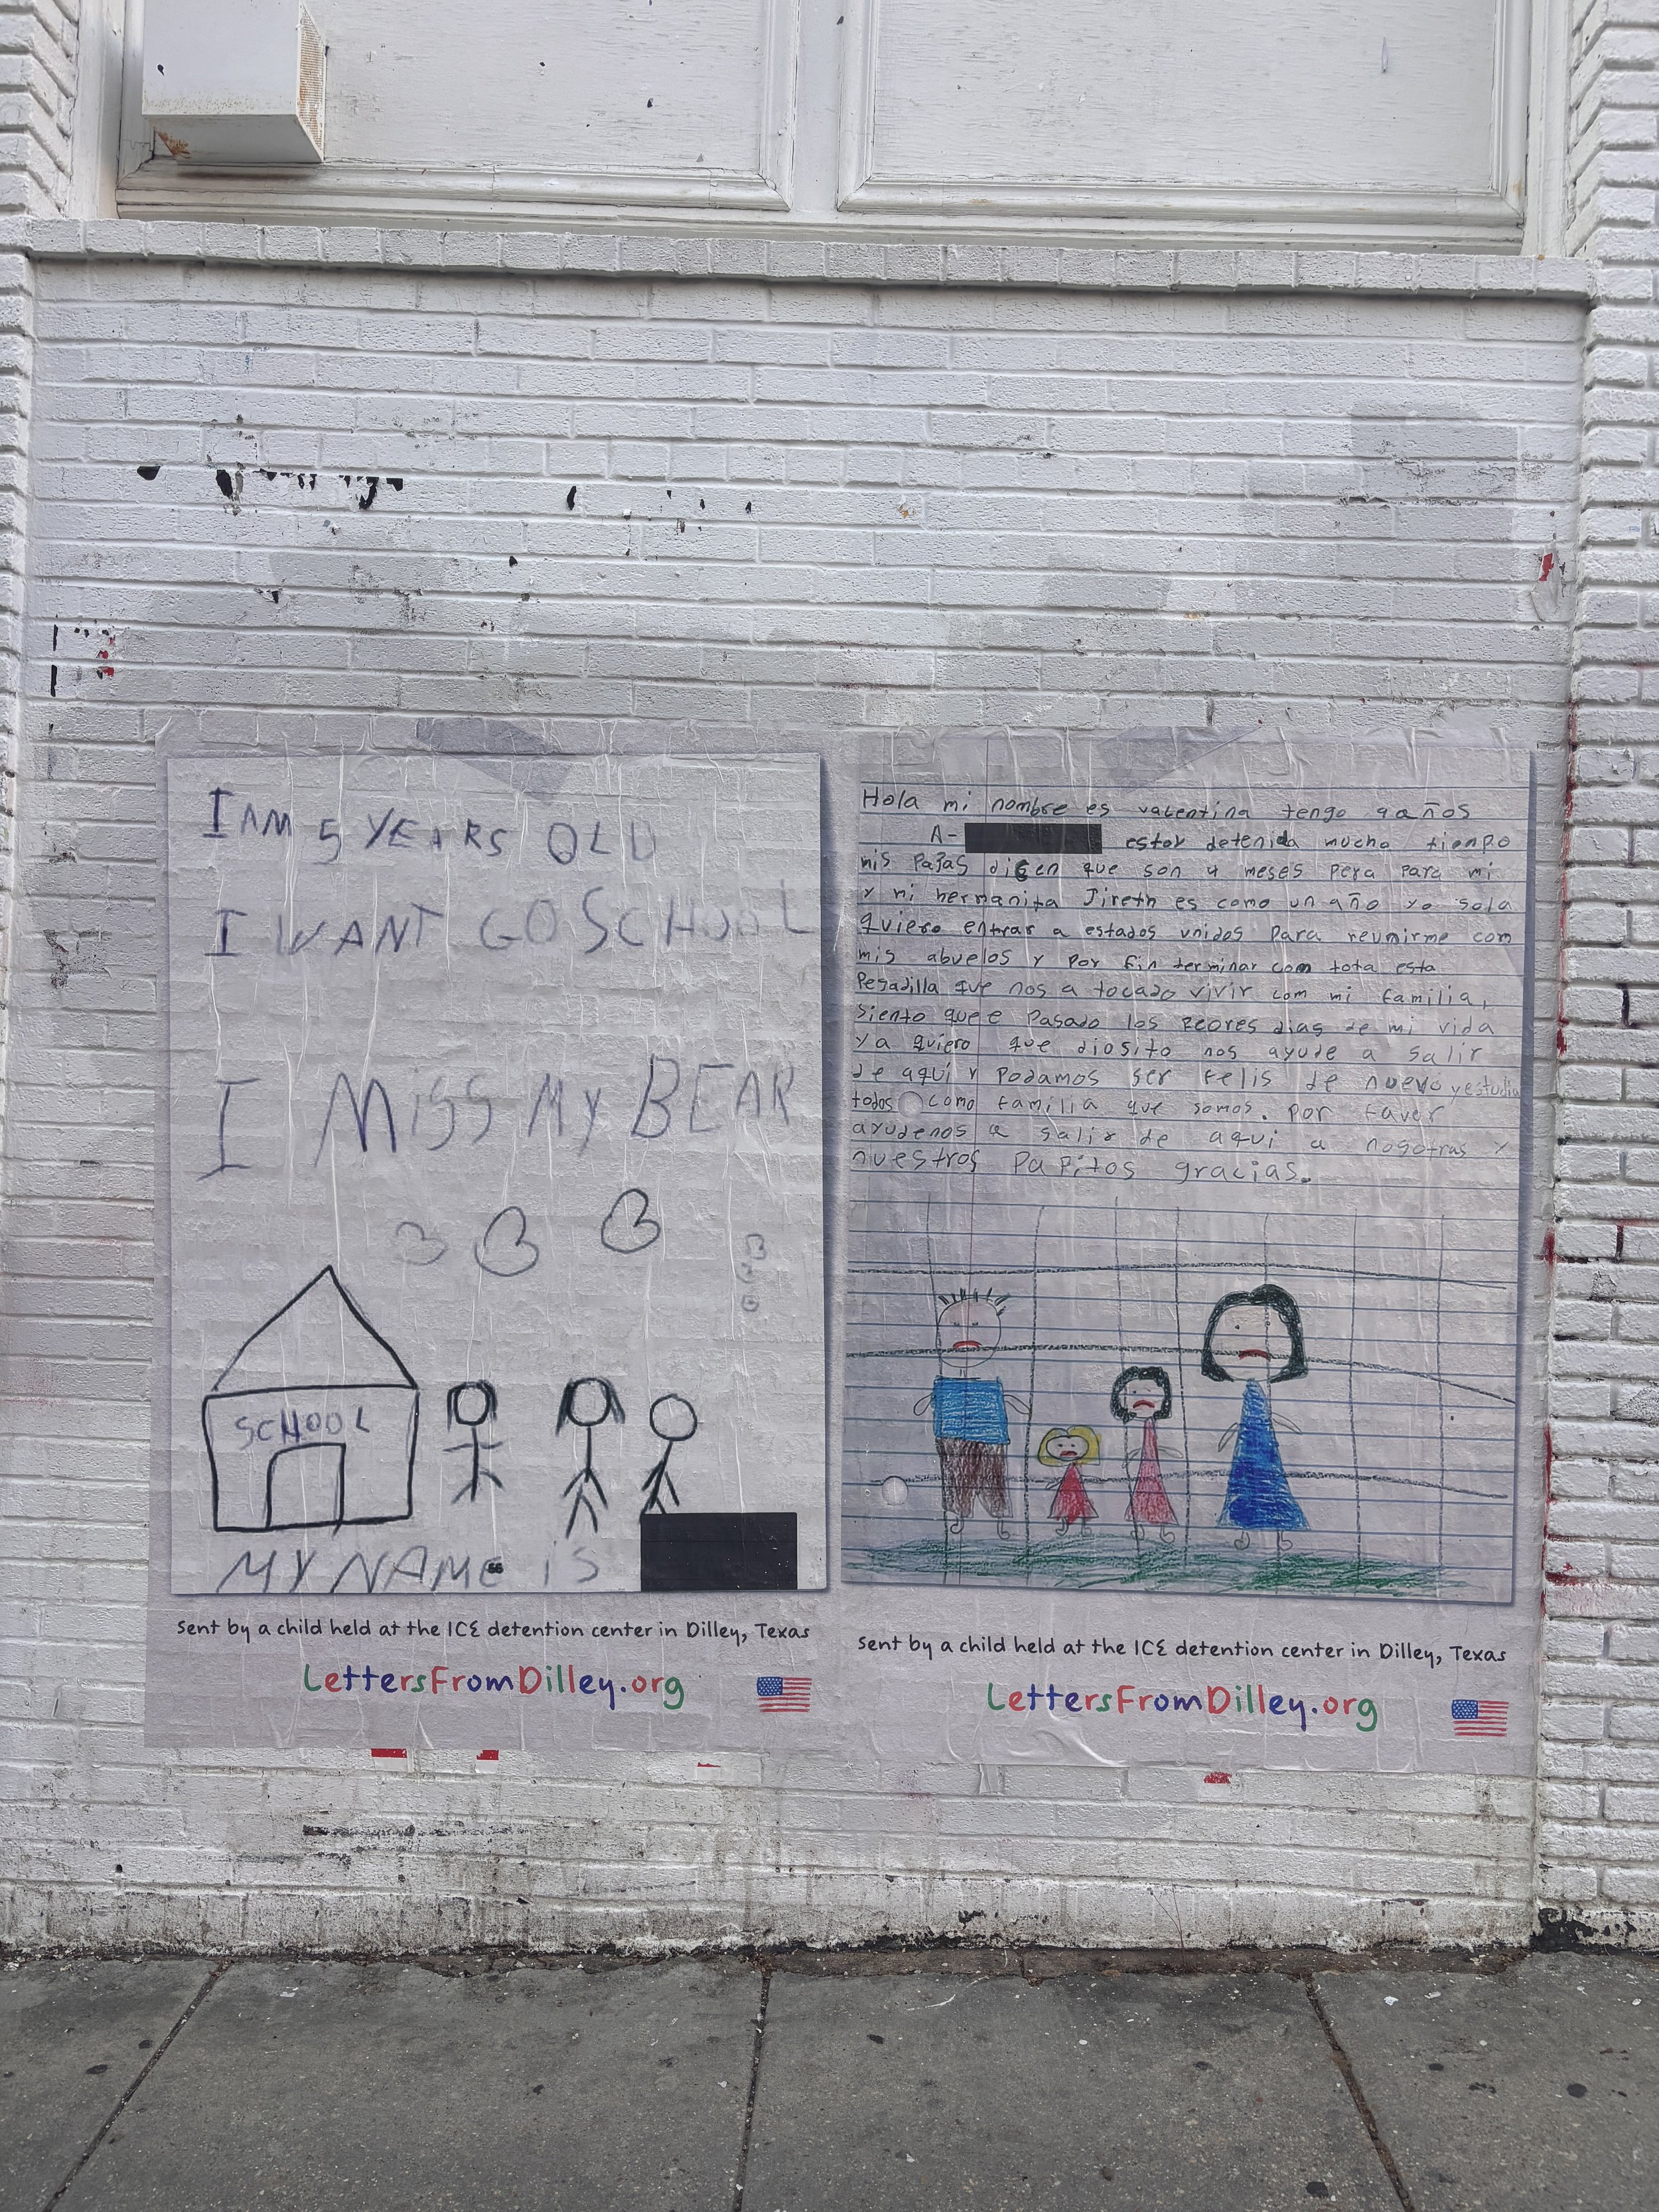 I AM 5 YEARS OLD
I WANT GO SCHOOL
I MiSS MY BEAR
SCHOOL
MY NAMe iS
Sent by a child held at the ICE detention center in Dilley, Texas
LettersFromDilley.org
Hola mi nombre es valentina tengo 9 años
A- estoy detenida mucho tiempo
mis papas dicen que son 4 meses pera para mi
y mi hermanita Jireth es como un año yo sola
quiero entrar a estados unidos para reunirme com
mis abuelos y por fin terminar com tota esta
Pesadilla que nos a tocado vivir com mi familia,
siento que e pasado los peores dias de mi vida
ya quiero que diosito nos ayude a salir
de aqui y podamos ser felis de nuevo y estudia
todos como familia que somos. por faver
ayudenos a salir de aqui a nosotras y
nuestros papitos gracias.
Sent by a child held at the ICE detention center in Dilley, Texas
LettersFromDilley.org